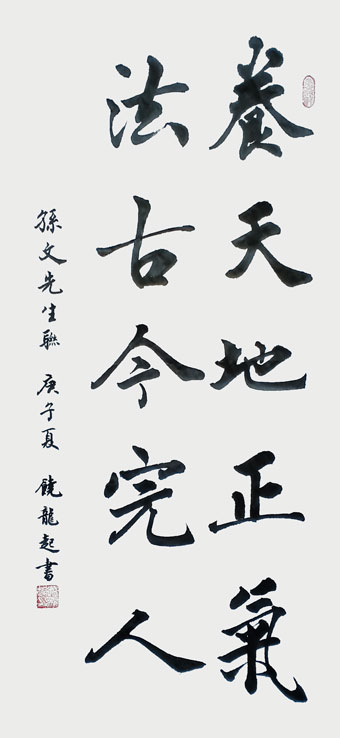 養天地正氣
法古今完人
孫文先生聯 庚子夏 饒龍起書